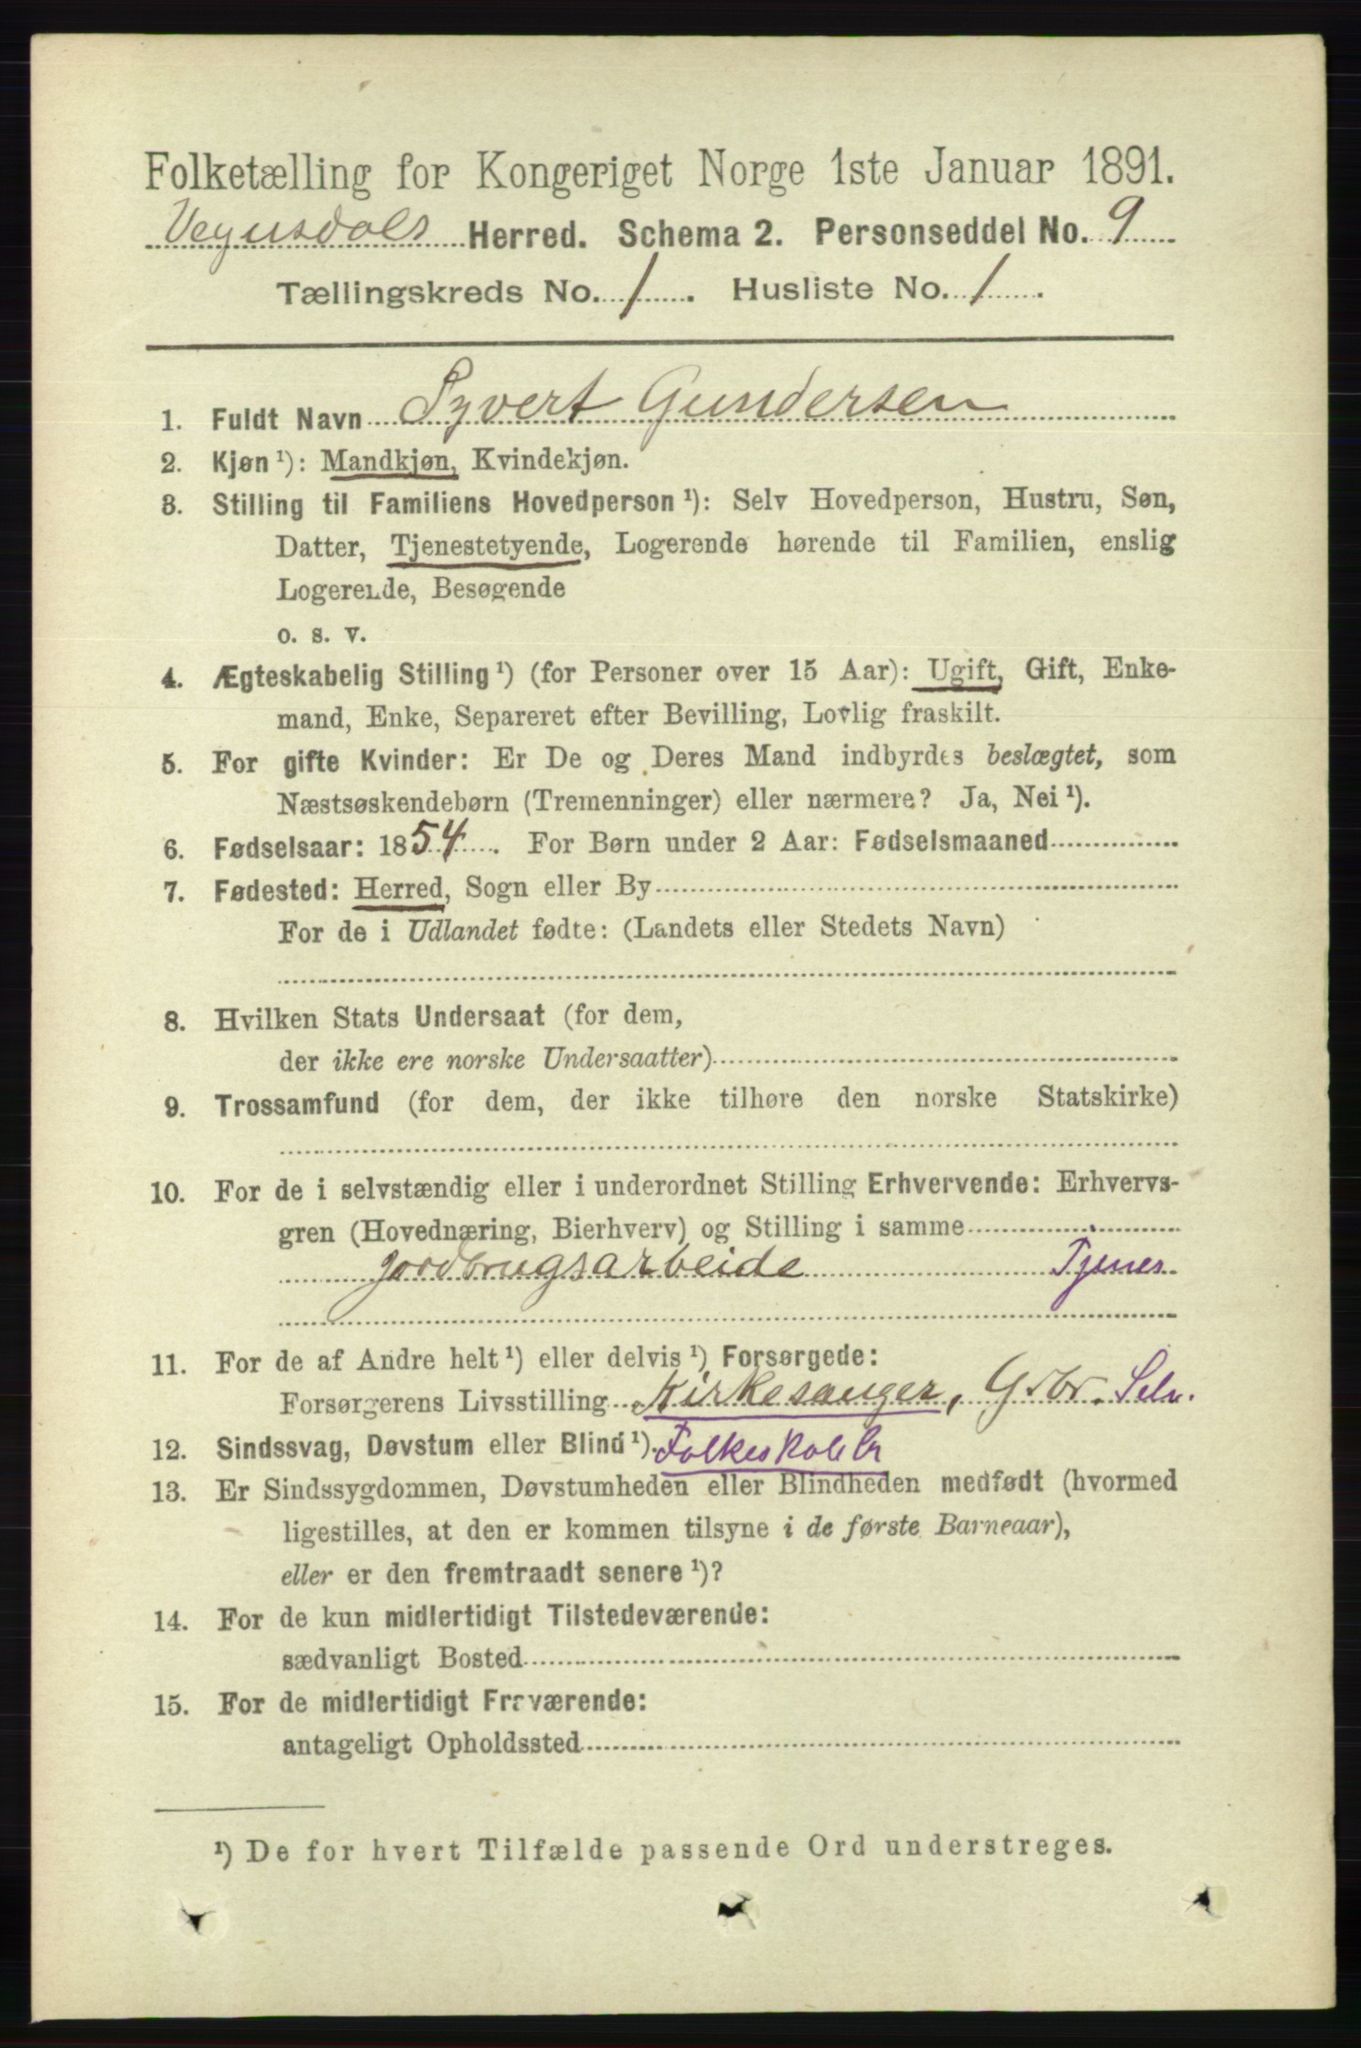 Folketælling for Kongeriget Norge 1ste Januar 1891.
Vegusdals Herred. Schema 2. Personseddel No. 9
Tællingskreds No. 1. Husliste No. 1.
1. Fuldt Navn Syvert Gundersen
2. Kjøn ¹): Mandkjøn, Kvindekjøn.
3. Stilling til Familiens Hovedperson ¹): Selv Hovedperson, Hustru, Søn,
Datter, Tjenestetyende, Logerende hørende til Familien, enslig
Logerende, Besøgende
o. s. v.
4. Ægteskabelig Stilling ¹) (for Personer over 15 Aar): Ugift, Gift, Enke-
mand, Enke, Separeret efter Bevilling, Lovlig fraskilt.
5. For gifte Kvinder: Er De og Deres Mand indbyrdes beslægtet, som
Næstsøskendebørn (Tremenninger) eller nærmere? Ja, Nei ¹).
6. Fødselsaar: 1854. For Børn under 2 Aar: Fødselsmaaned
7. Fødested: Herred, Sogn eller By
For de i Udlandet fødte: (Landets eller Stedets Navn)
8. Hvilken Stats Undersaat (for dem,
der ikke ere norske Undersaatter)
9. Trossamfund (for dem, der ikke tilhøre den norske Statskirke)
10. For de i selvstændig eller i underordnet Stilling Erhvervende: Erhvervs-
gren (Hovednæring, Bierhverv) og Stilling i samme
Jordbrugsarbeide Tjener
11. For de af Andre helt ¹) eller delvis ¹) Forsørgede:
Forsørgerens Livsstilling Kirkesanger, Grbr. Selv.
12. Sindssvag, Døvstum eller Blind ¹).
13. Er Sindssygdommen, Døvstumheden eller Blindheden medfødt (hvormed
ligestilles, at den er kommen tilsyne i de første Barneaar),
eller er den fremtraadt senere ¹)?
14. For de kun midlertidigt Tilstedeværende:
sædvanligt Bosted
15. For de midlertidigt Fraværende:
antageligt Opholdssted
¹) De for hvert Tilfælde passende Ord understreges.